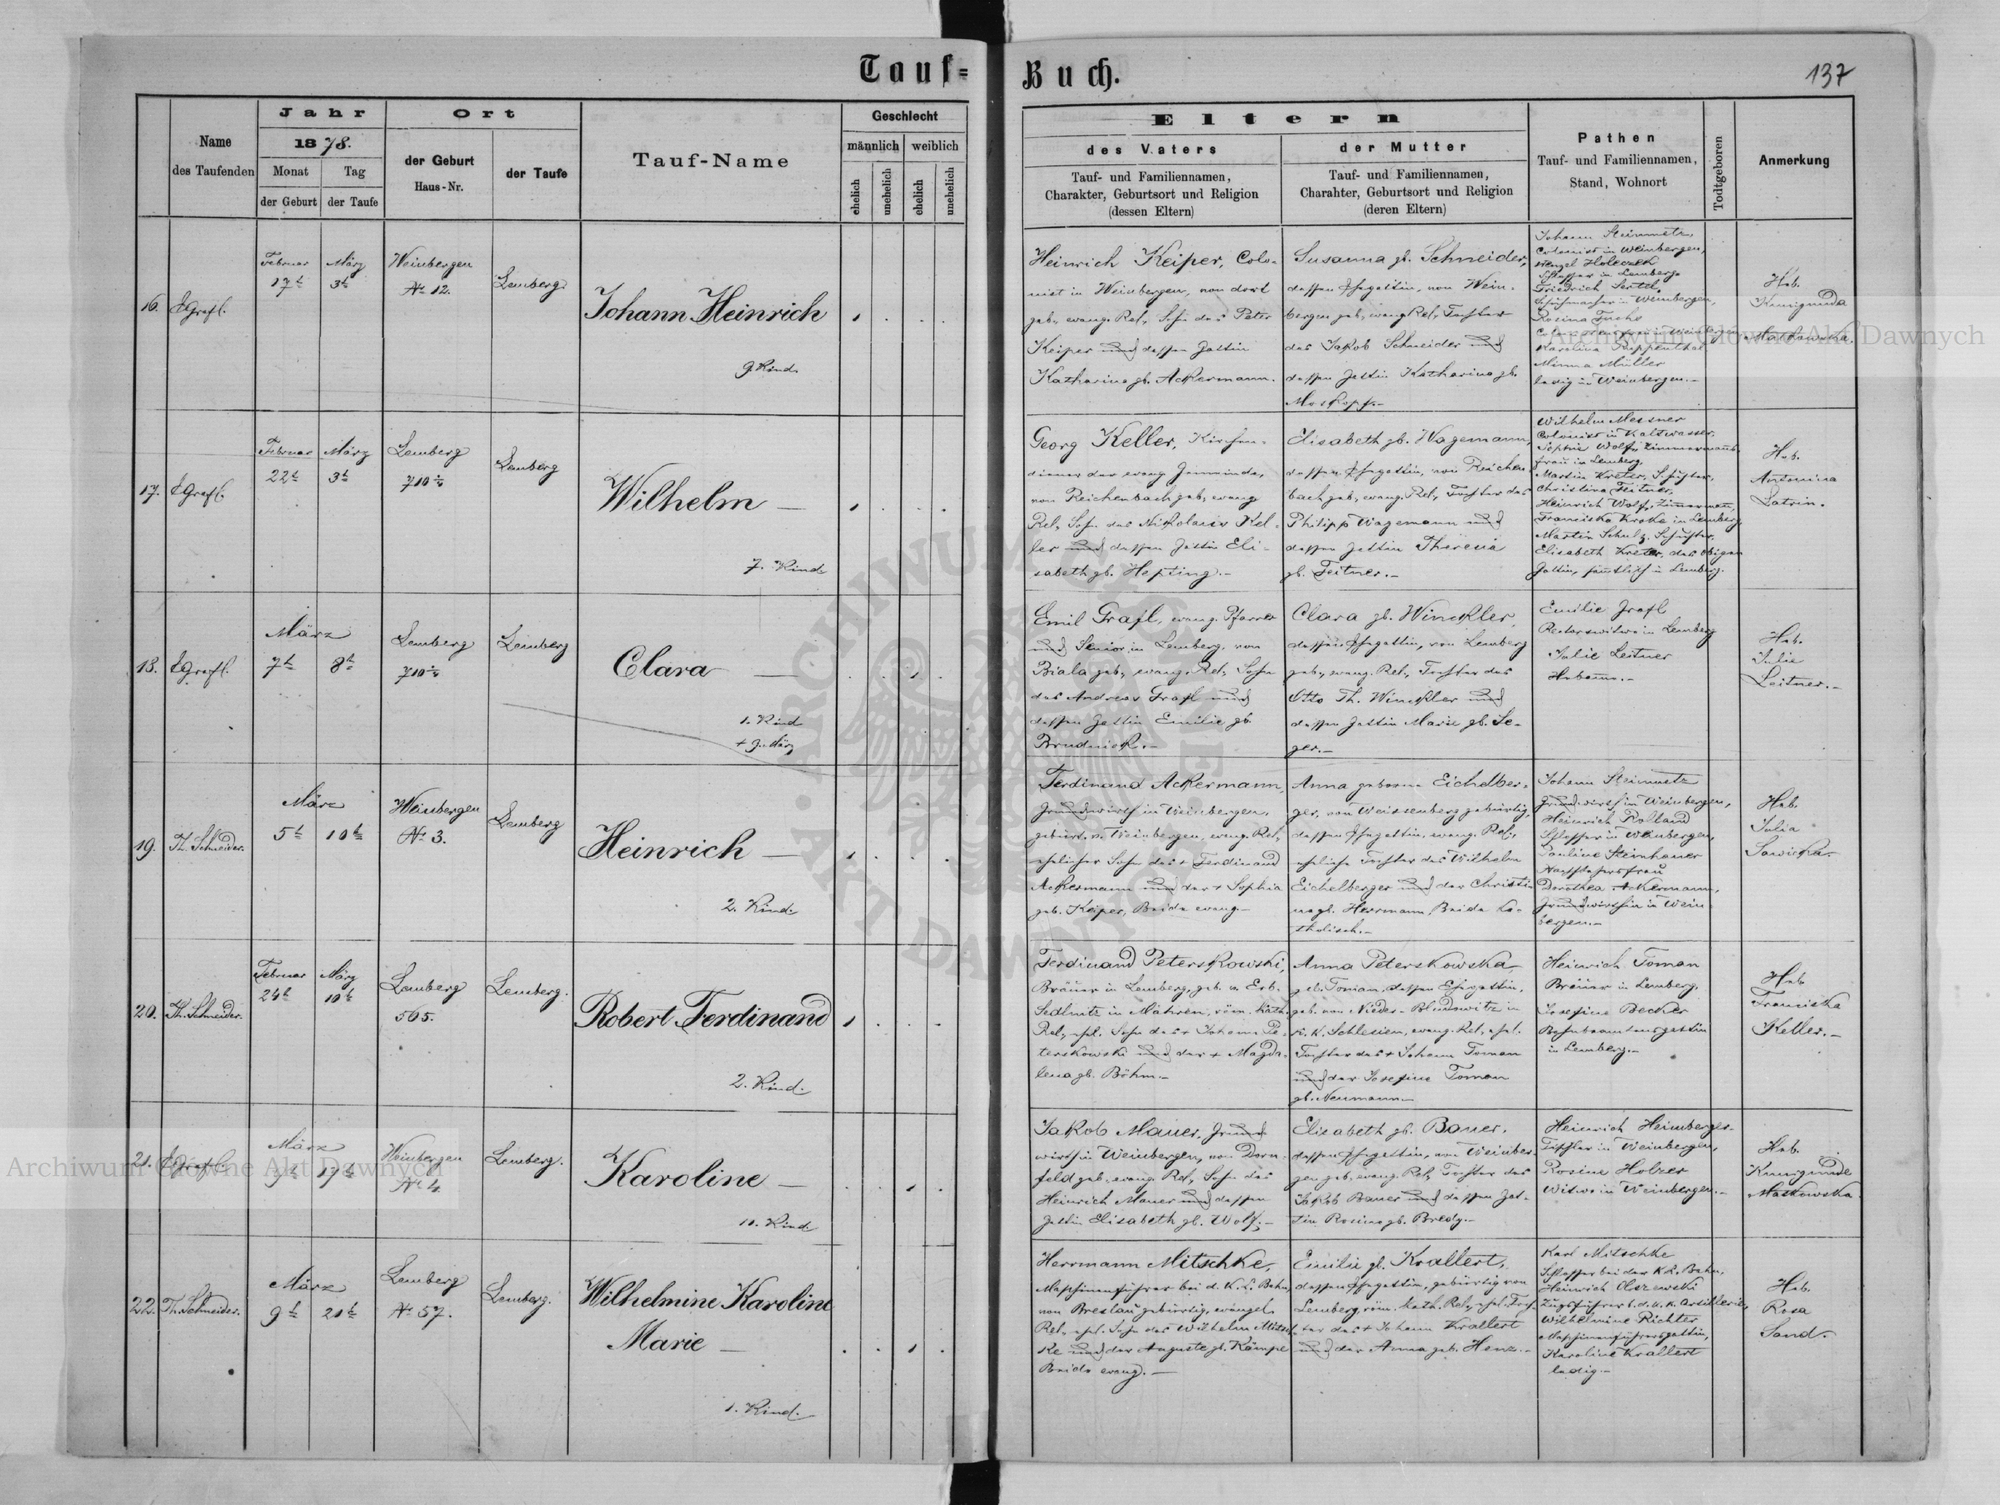 Tauf-
Buch.
137
Name
des Taufenden
Jahr
1878.
Monat
Tag
der Geburt
der Taufe
Ort
der Geburt
Haus-Nr.
der Taufe
Tauf-Name
Geschlecht
männlich
weiblich
ehelich
unehelich
ehelich
unehelich
Eltern
des Vaters
Tauf- und Familiennamen,
Charakter, Geburtsort und Religion
(dessen Eltern)
der Mutter
Tauf- und Familiennamen,
Charahter, Geburtsort und Religion
(deren Eltern)
Pathen
Tauf- und Familiennamen,
Stand, Wohnort
Todtgeboren
Anmerkung
16.
EGrafl.
Februar
17t
März
3t
Weinbergen
No 12.
Lemberg
Johann Heinrich
9. Kind.
Heinrich Keiper, Colo-
nist in Weinbergen, von dort
geb., evang. Rel., Sohn des Peter
Keiper und dessen Gattin
Katharina gb. Ackermann.
Susanna gb. Schneider,
dessen Ehegattin, von Wein-
bergen geb., evang. Rel., Tochter
des Jakob Schneider und
dessen Gattin Katharina gb.
Moskopf.-
Johann Steinmetz,
Colonist in Weinbergen,
Wenzel Holeczek
Schlosser in Lemberg
Friedrich Sertel,
Schuhmacher in Weinbergen,
Rosina Fuchs
Karolina Rippenthal
Minna Müller
ledig in Weinbergen.-
Heb.
Kunigunda
Maskowska.
17.
EGrafl.
Februar
22t
März
3t
Lemberg
710 2/4
Lemberg
Wilhelm
7. Kind.
Georg Keller, Kirchen-
diener der evang. Gemeinde,
von Reichenbach geb., evang.
Rel., Sohn des Nikolaus Kel-
ler und dessen Gattin Eli-
sabeth gb. Hepting.-
Elisabeth gb. Wagemann,
dessen Ehegattin, von Reichen-
bach geb., evang. Rel., Tochter des
Philipp Wagemann und
dessen Gattin Theresia
gb. Teitner.-
Wilhelm Messner
Colonist in Kaltwasser,
Sophia Wolf, Zimmermanns-
frau in Lemberg,
Martin Kreter, Schuster,
Christina Teitner,
Heinrich Wolf, Zimmermann,
Franciska Kroke in Lemberg,
Martin Schulz, Schuster,
Elisabeth Kreter, des obigen
Gattin, sämtlich in Lemberg.
Heb.
Antonina
Latrin.
18.
EGrafl.
März
7t
8t
Lemberg
710 2/4
Lemberg
Clara
1. Kind
+ 9. März
Emil Grafl, evang. Pfarrer
und Senior in Lemberg, von
Biala geb., evang. Rel., Sohn
des Andreas Grafl und
dessen Gattin Emilie gb.
Brudniok.-
Clara gb. Winckler,
dessen Ehegattin, von Lemberg
geb., evang. Rel., Tochter des
Otto Th. Winckler und
dessen Gattin Marie gb. Se-
ger.-
Emilie Grafl
Rectorswitwe in Lemberg
Julie Leitner
Hebamme.-
Heb.
Julie
Leitner.-
19.
Th. Schneider.
März
5t
10t
Weinbergen
No 3.
Lemberg
Heinrich
2. Kind.
Ferdinand Ackermann,
Grundwirth in Weinbergen,
gebürt. v. Weinbergen, evang. Rel.,
ehelicher Sohn des + Ferdinand
Ackermann und der + Sophia
geb. Keiper, Beide evang.-
Anna geborne Eichelber-
ger, von Weissenberg gebürtig,
dessen Ehegattin, evang. Rel.,
eheliche Tochter des Wilhelm
Eichelberger und der Christi-
na gb. Herrmann, Beide ka-
tholisch.-
Johann Steinmetz
Grundwirth in Weinbergen,
Heinrich Rolland
Schlosser in Weinbergen,
Pauline Steinhauer
Dorothea Ackermann,
Grundwirthin in Wein-
bergen.-
Heb.
Julia
Sawicka.
20.
Th. Schneider.
Februar
24t
März
10t
Lemberg
505.
Lemberg.
Robert Ferdinand
2. Kind.
Ferdinand Peterskowski,
Bräuer in Lemberg, geb. v. Erb-
Sedlnitz in Mähren, röm. kath.
Rel., ehel. Sohn des + Johann Pe-
terskowski und der + Magda-
lena gb. Böhm.-
Anna Peterskowska
geb. Toman, dessen Ehegattin,
geb. von Nieder-Bludowitz in
k. k. Schlesien, evang. Rel., ehel.
Tochter des + Johann Toman
und der Josefine Toman
gb. Neumann-
Heinrich Toman
Bräuer in Lemberg.
Josefine Becher
Bahnbeamtensgattin
in Lemberg.-
Heb.
Franciska
Keller.-
21.
EGrafl.
März
9t
17t
Weinbergen
No 4.
Lemberg.
Karoline
10. Kind
Jakob Mauer, Grund-
wirth in Weinbergen, von Dorn-
feld geb., evang. Rel., Sohn des
Heinrich Mauer und dessen
Gattin Elisabeth gb. Wolf.-
Elisabeth gb. Bauer,
dessen Ehegattin, von Weinber-
gen geb., evang. Rel., Tochter des
Jakob Bauer und dessen Gat-
tin Rosina gb. Bredy.-
Heinrich Heimberger
Tischler in Weinbergen,
Rosine Holzer
Witwe in Weinbergen.-
Heb.
Kunigunde
Maskowska
22.
Th. Schneider.
März
9t
20t
Lemberg
No 57.
Lemberg.
Wilhelmine Karoline
Marie
1. Kind.
Herrmann Mitschke,
Maschinenführer bei d. K. L. Bahn,
von Breslau gebürtig, evangel.
Rel., ehel. Sohn des Wilhelm Mitsch-
ke und der Auguste gb. Kämpe
Beide evang.-
Emilie gb. Krallert,
dessen Ehegattin, gebürtig von
Lemberg, röm. kath. Rel., ehel. Toch-
ter des + Johann Krallert
und der Anna geb. Henz.-
Karl Mitschke
Schlosser bei der K. L. Bahn,
Heinrich Olszewski
Zugsführer b. d. k. k. Artillerie,
Wilhelmine Richter
Maschinenführersgattin,
Karoline Krallert
ledig-
Heb.
Rosa
Sand.
Archiwum Główne Akt Dawnych
Archiwum Główne Akt Dawnych
ARCHIWUM GŁÓWNE AKT DAWNYCH